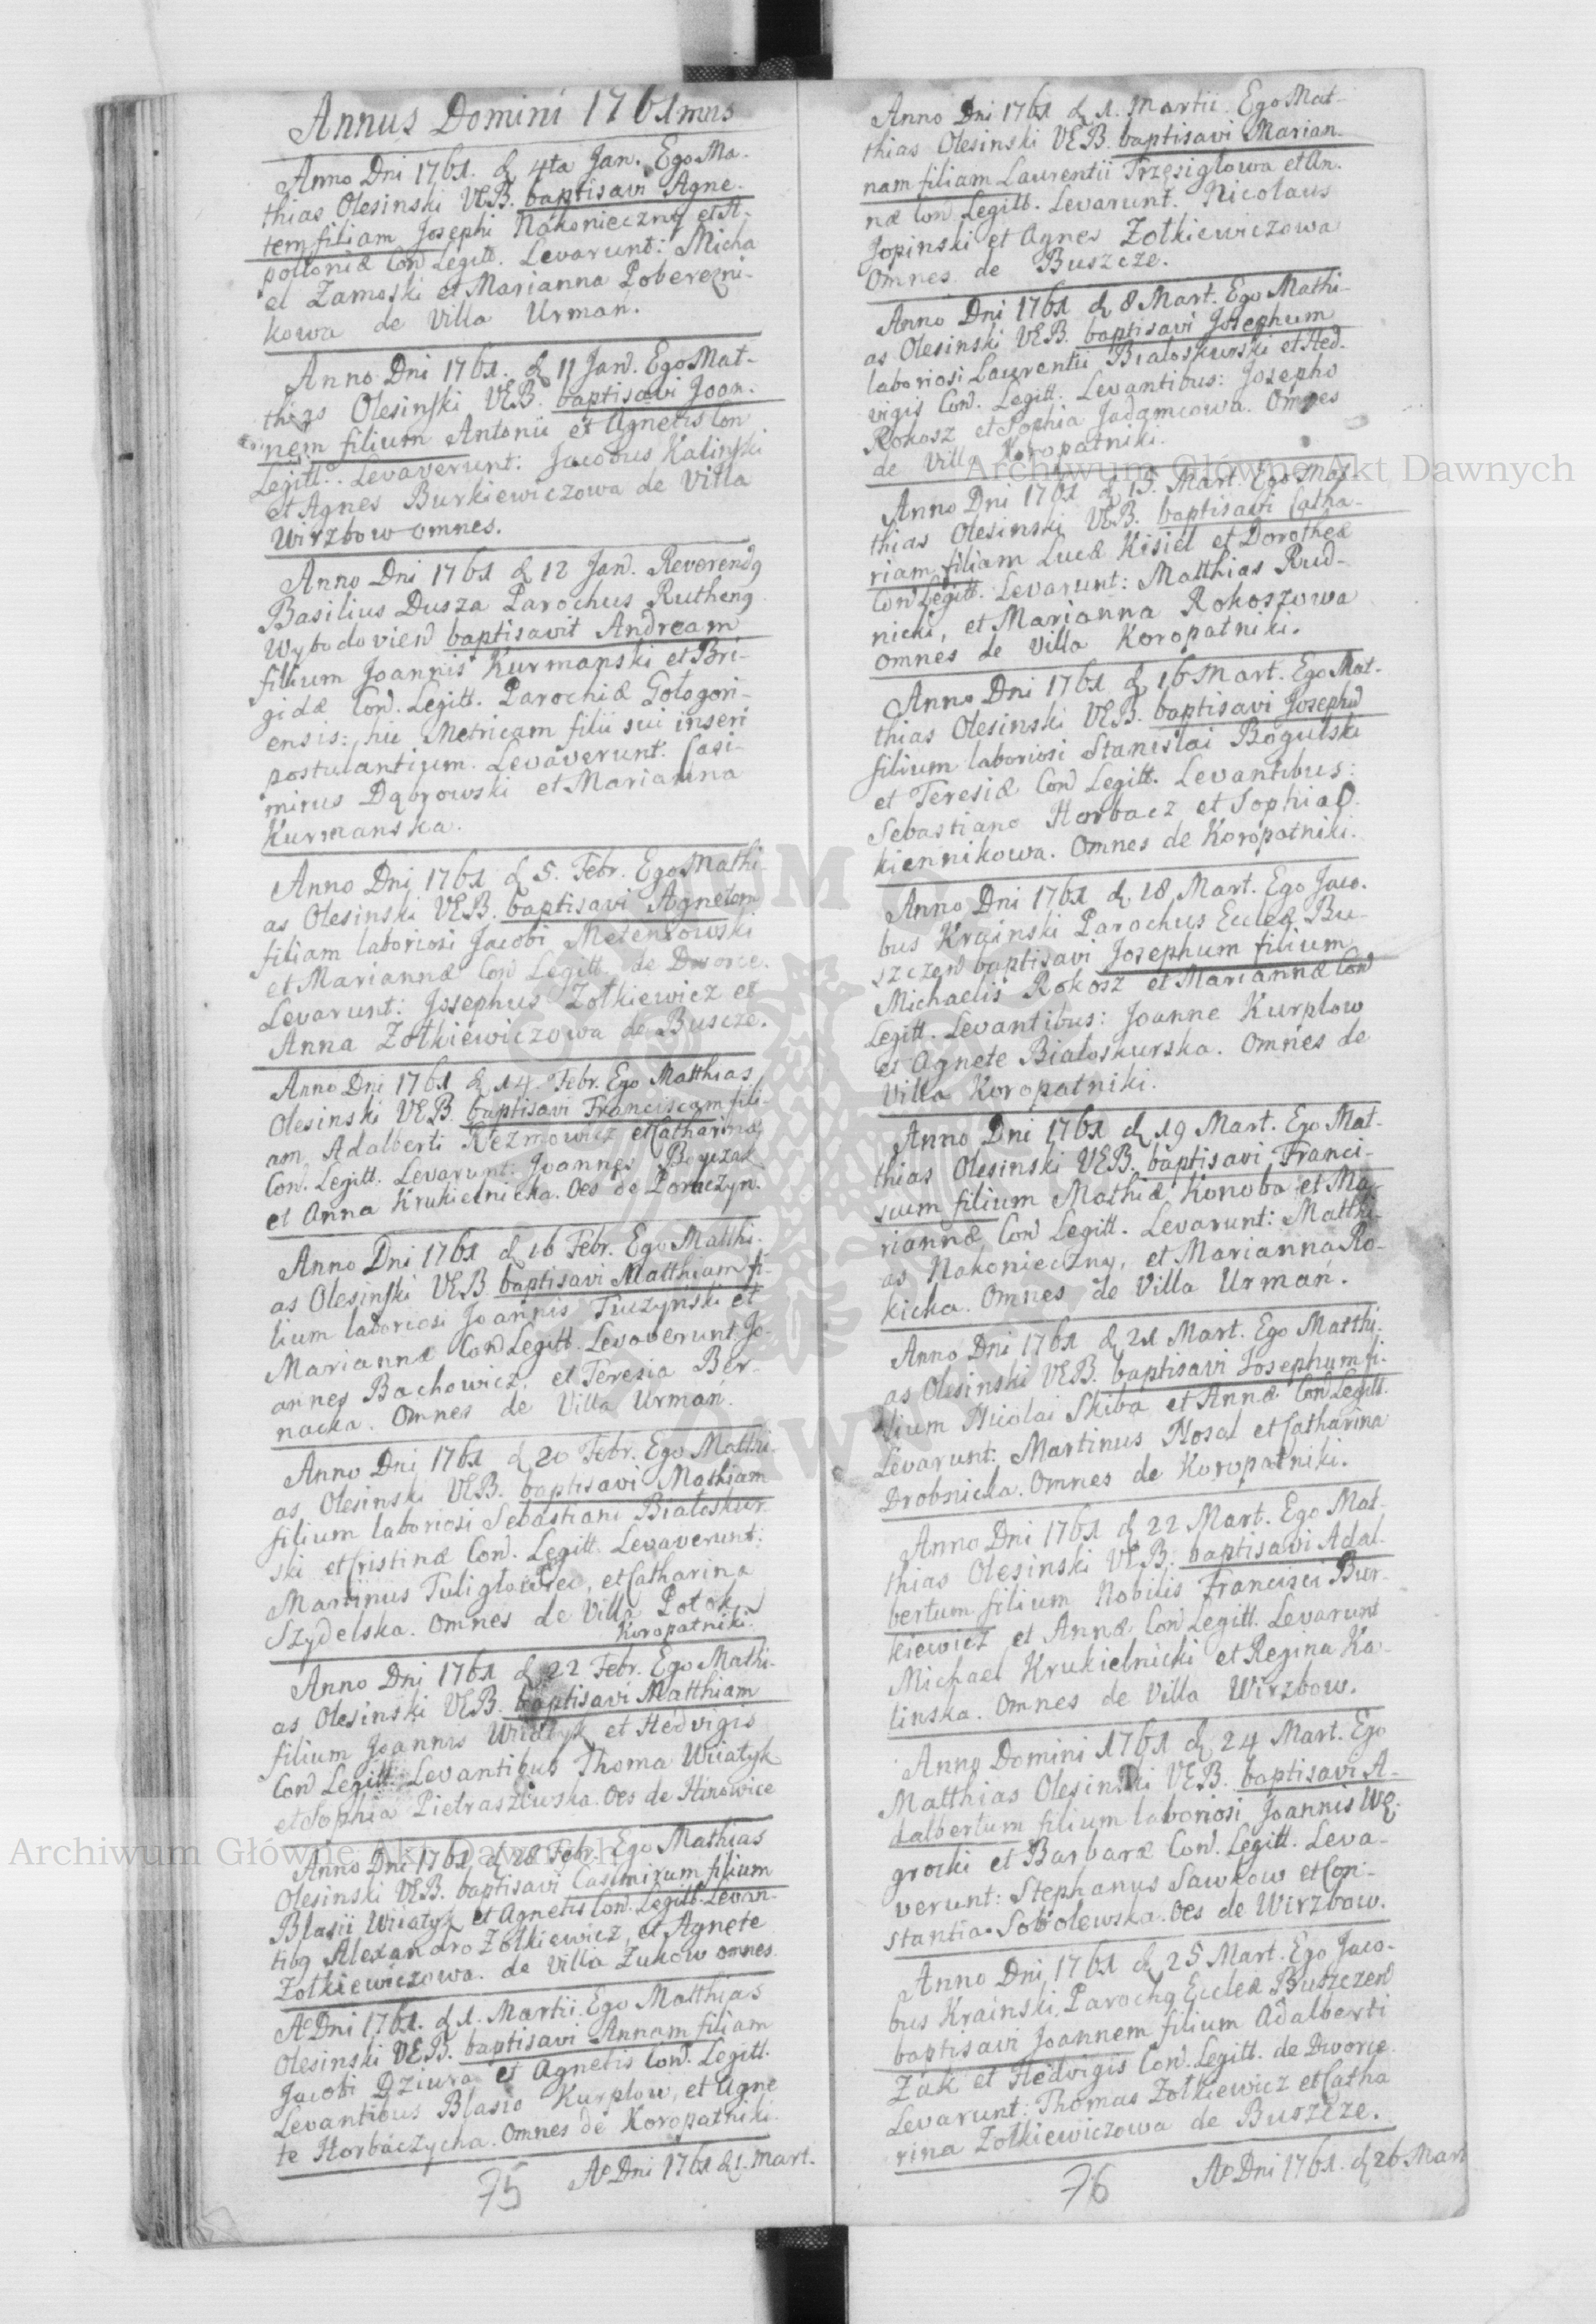 Annus Domini 1761mus
Anno Dni 1761. d 4ta Jan. Ego Ma-
thias Olesinski VEB. baptisavi Agne-
tem filiam Josephi Nakonieczny et A-
polloniæ Con. Legitt. Levarunt: Micha
el Zamoski et Marianna Poberezni-
kowa de Villa Urmań.
Anno Dni 1761. d 11 Jan. Ego Mat-
thias Olesinski VEB. baptisavi Joan-
nem filium Antonii et Agnetis Con
Legitt. Levaverunt: Jacobus Kalinski
et Agnes Burkiewiczowa de Villa
Wirzbow omnes.
Anno Dni 1761 d 12 Jan. Reverendq
Basilius Dusza Parochus Ruthenq
Wybudovien baptisavit Andream
filium Joannis Kurmanski et Bri-
gidæ Con. Legitt. Parochiæ Gołogori-
ensis: hic Metricam filii sui inseri
postulantium. Levaverunt. Casi-
mirus Dąbrowski et Marianna
Kurmanska.
Anno Dni 1761 d 5. Febr. Ego Mathi-
as Olesinski VEB. baptisavi Agnetem
filiam laboriosi Jacobi
et Mariannæ Con Legitt. de Dworce.
Levarunt: Josephus Zołkiewicz et
Anna Zołkiewiczowa de Buscze.
Anno Dni 1761 d 14. Febr. Ego Matthias
Olesinski VEB. baptisavi Franciscam fili-
am Adalberti Rezmowicz et Catharinæ
Con. Legitt. Levarunt: Joannes Boyczak
et Anna Krukielnicka. Oes de Poruczyn.
Anno Dni 1761 d 16 Febr. Ego Matthi-
as Olesinski VEB baptisavi Matthiam fi-
lium laboriosi Joannis Tuczyński et
Mariannæ Con Legitt. Levaverunt. Jo-
annes Bachowicz, et Teresia Ber-
nacka. Omnes de Villa Urmań.
Anno Dni 1761 d 20 Febr. Ego Matthi-
as Olesinski VEB. baptisavi Mathiam
filium laboriosi Sebastiani Białoskur-
ski et Cristinæ Con. Legitt. Levaverunt:
Martinus Tuligłowiec, et Catharina
Szydelska. Omnes de Villa Potok.
Koropatniki.
Anno Dni 1761 d 22 Febr. Ego Mathi-
as Olesinski VEB. baptisavi Matthiam
filium Joannis Wiiatyk et Hedvigis
Con Legitt. Levantibus Thoma Wiiatyk
et Sophia Pietraszewska. Oes de Hinowice
Anno Dni 1761 d 28 Febr. Ego Mathias
Olesinski VEB. baptisavi Casimirum filium
Blasii Wiiatyk et Agnetis Con. Legitt. Levan-
tibq Alexandro Zołkiewicz, et Agnete
Zołkiewiczowa. de Villa Zukow omnes.
Ao Dni 1761. d 1. Martii. Ego Matthias
Olesinski VEB. baptisavi Annam filiam
Jacobi Dziura et Agnetis Con. Legitt.
Levantibus Blasio Kurplow, et Agne
te Horbaczycha. Omnes de Koropatniki.
75 Ao Dni 1761 d 1. Mart.
Anno Dni 1761 d 1. Martii. Ego Mat-
thias Olesinski VEB. baptisavi Marian-
nam filiam Laurentii Trzesiglowa et An-
næ Con. Legitt. Levarunt. Nicolaus
Jopinski et Agnes Zołkiewiczowa
Omnes de Buszcze.
Anno Dni 1761 d 8 Mart. Ego Mathi-
as Olesinski VEB. baptisavi Josephum
laboriosi Laurentii Białoskurski et Hed-
vigis Con. Legitt. Levantibus: Josepho
Rokosz et Sophia Jadamcowa. Omnes
de Villa Koropatniki.
Anno Dni 1761 d 15. Mart. Ego Mat
thias Olesinski VEB. baptisavi Catha-
riam filiam Lucæ Kisiel et Dorotheæ
Con Legitt. Levarunt: Matthias Rud-
nicki, et Marianna Rokoszowa
omnes de Villa Koropatniki.
Anno Dni 1761 d 16 Mart. Ego Mat-
thias Olesinski VEB. baptisavi Josephu
filium laboriosi Stanislai Bogulski
et Teresiæ Con Legitt. Levantibus:
Sebastiano Horbacz et Sophia O-
kiennikowa. Omnes de Koropatniki.
Anno Dni 1761 d 18 Mart. Ego Jaco-
bus Krainski Parochus Eccleæ Bu-
szczen baptisavi Josephum filium
Michaelis Rokosz et Mariannæ Con
Legitt. Levantibus: Joanne Kurplow
et Agnete Białoskurska. Omnes de
Villa Koropatniki.
Anno Dni 1761 d 19 Mart. Ego Mat-
thias Olesinski VEB. baptisavi Franci-
scum filium Mathiæ Konoba et Ma-
riannæ Con Legitt. Levarunt: Matthi-
as Nakonieczny, et Marianna Ro-
kicka. Omnes de Villa Urmań.
Anno Dni 1761 d 21 Mart. Ego Matthi-
as Olesinski VEB. baptisavi Josephum fi-
lium Nicolai Skiba et Annæ Con Legitt.
Levarunt: Martinus Nosal et Catharina
Drobnicka. Omnes de Koropatniki.
Anno Dni 1761 d 22 Mart. Ego Mat-
thias Olesinski VEB. baptisavi Adal-
bertum filium Nobilis Francisci Bur-
kiewicz et Annæ Con Legitt. Levarunt
Michael Krukielnicki et Regina Ka-
linska. Omnes de Villa Wirzbow.
Anno Domini 1761 d 24 Mart. Ego
Matthias Olesinski VEB. baptisavi A-
dalbertum filium laboriosi Joannis Wę-
grocki et Barbaræ Con. Legitt. Leva-
verunt: Stephanus Sawkow et Con-
stantia Sobolewska. Oes de Wirzbow.
Anno Dni 1761 d 25 Mart. Ego Jaco-
bus Krainski Parochq Eccleæ Buszczen
baptisavi Joannem filium Adalberti
Zak et Hedvigis Con. Legitt. de Dworce.
Levarunt: Thomas Zołkiewicz et Catha
rina Zołkiewiczowa de Buszcze.
76 Ao Dni 1761. d 26 Mart
Archiwum Główne Akt Dawnych
Archiwum Główne Akt Dawnych